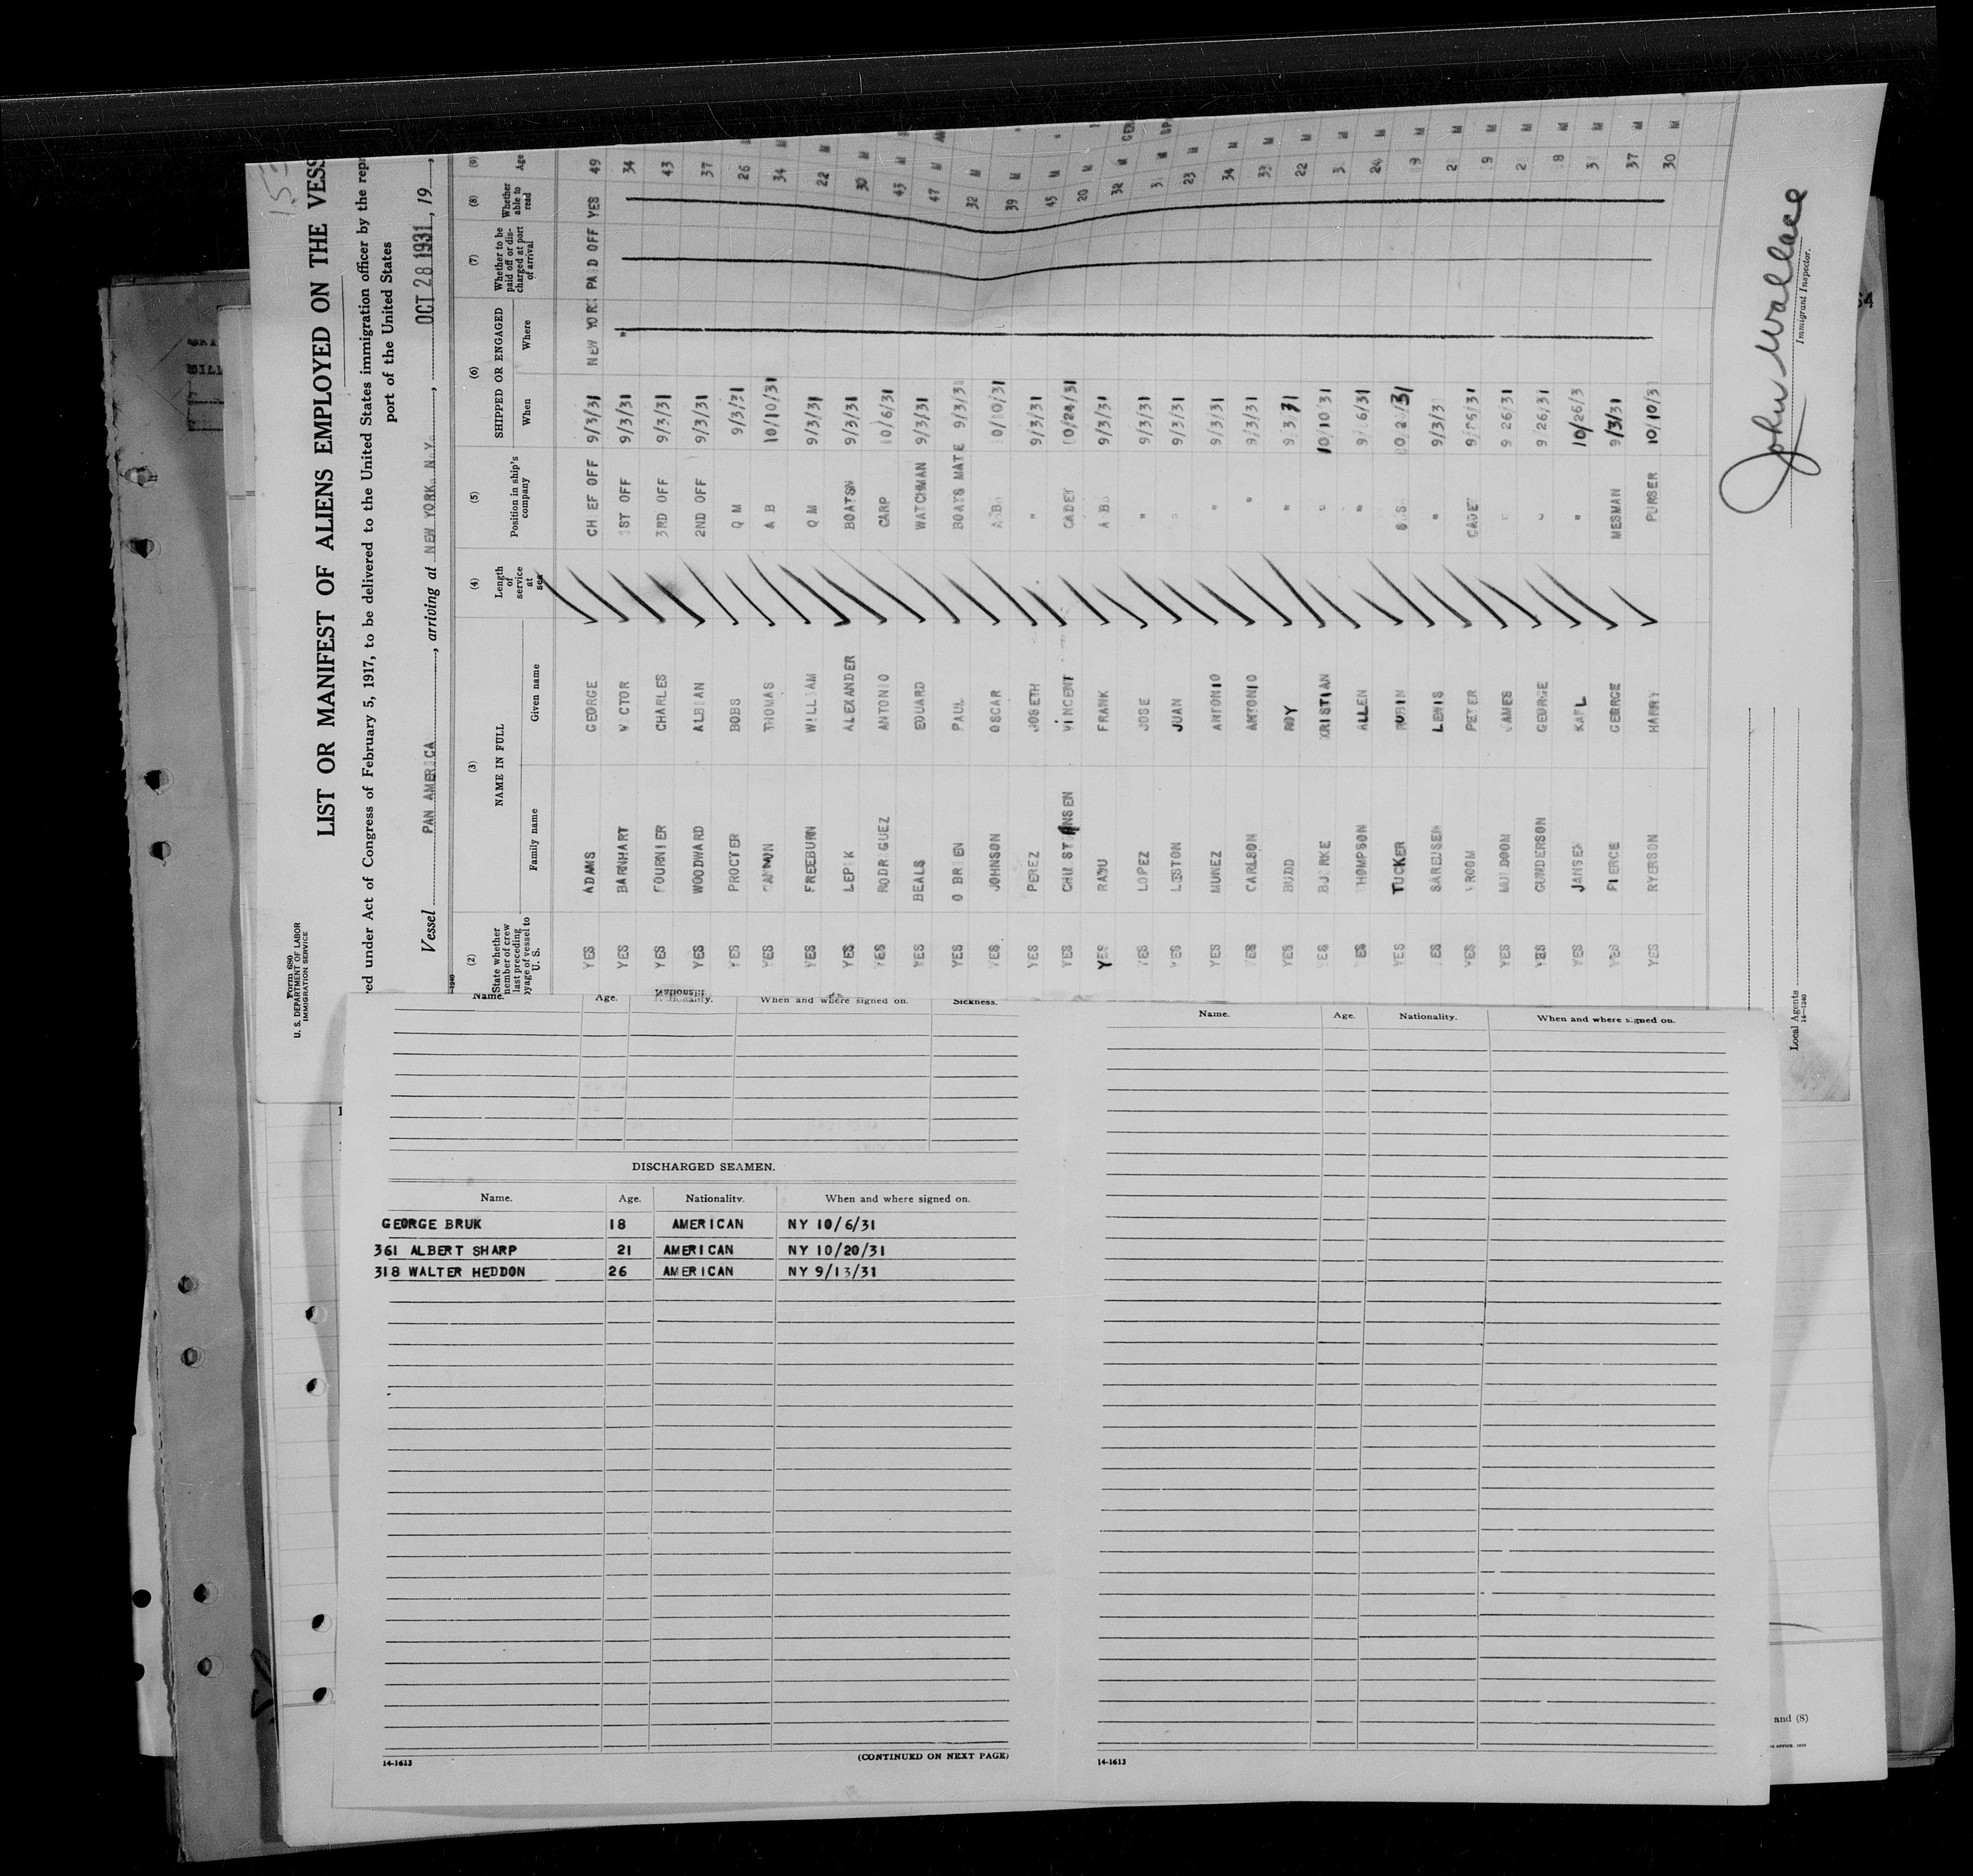 Form 680
U. S. DEPARTMENT OF LABOR
IMMIGRATION SERVICE
LIST OR MANIFEST OF ALIENS EMPLOYED ON THE
under Act of Congress of February 5, 1917, to be delivered to the United States immigration officer by the
port of the United States
Vessel PAN AMERICA, arriving at NEW YORK. N.Y., OCT 28 1931, 19
(2) (3) (4) (5) (6) (7) (8) (9)
State whether member of crew last preceding voyage of vessel to U. S. NAME IN FULL Length of service at sea Position in ship's company SHIPPED OR ENGAGED Whether to be paid off or discharged at port of arrival Whether able to read Age
Family name Given name When Where
YES ADAMS GEORGE CHIEF OFF 9/3/31 NEW YORK PAID OFF YES 49
YES BARNHART VICTOR 1ST OFF 9/3/31 " 34
YES FOURNIER CHARLES 3RD OFF 9/3/31 43
YES WOODWARD ALBIAN 2ND OFF 9/3/31 37
YES PROCTER BOBS Q M 9/3/31 26
YES THOMAS A B 10/10/31 34 M
YES FREEBURN WILLIAM Q M 9/3/31 22 M
YES LEPIK ALEXANDER BOATSN 9/3/31 30 M
YES RODRIGUEZ ANTONIO CARP 10/6/31 43 M
YES BEALS EDUARD WATCHMAN 9/3/31 47 M
YES O BRIEN PAUL BOATS MATE 9/3/31 32 M
YES JOHNSON OSCAR A B 10/10/31 39 M
YES PEREZ JOSETH " 9/3/31 45 M
YES VINCENT CADET 10/24/31 20 M
YES RADU FRANK A B 9/3/31 32 M
YES LOPEZ JOSE " 9/3/31 M
YES LESTON JUAN " 9/3/31 23 M
YES MUNEZ ANTONIO " 9/3/31 34 M
YES CARLSON ANTONIO " 9/3/31 M
YES BUDD ROY " 9/3/31 22 M
YES KRISTIAN " 10/10/31 M
YES THOMPSON ALLEN " 31 M
YES TUCKER RUBIN 31 M
YES SAREUSEN LEWIS " 9/3/31 M
YES VROOM PETER CADET 9/26/31 M
YES MULDOOM JAMES " 9/26/31 M
YES GUNDERSON GEORGE " 9/26/31 M
YES JANSEN KARL " 10/26/3 M
YES PIERCE GEORGE MESMAN 9/3/31 37 M
YES RYERSON HARRY PURSER 10/10/31 30 M
John Wallace
Immigrant Inspector.
Local Agents
14—1240
Name. Age. Nationality. When and where signed on. Sickness.
DISCHARGED SEAMEN.
Name. Age. Nationality. When and where signed on.
GEORGE BRUK 18 AMERICAN NY 10/6/31
361 ALBERT SHARP 21 AMERICAN NY 10/20/31
318 WALTER HEDDON 26 AMERICAN NY 9/13/31
14-1613 (CONTINUED ON NEXT PAGE)
Name. Age. Nationality. When and where signed on.
14-1613
and (8)